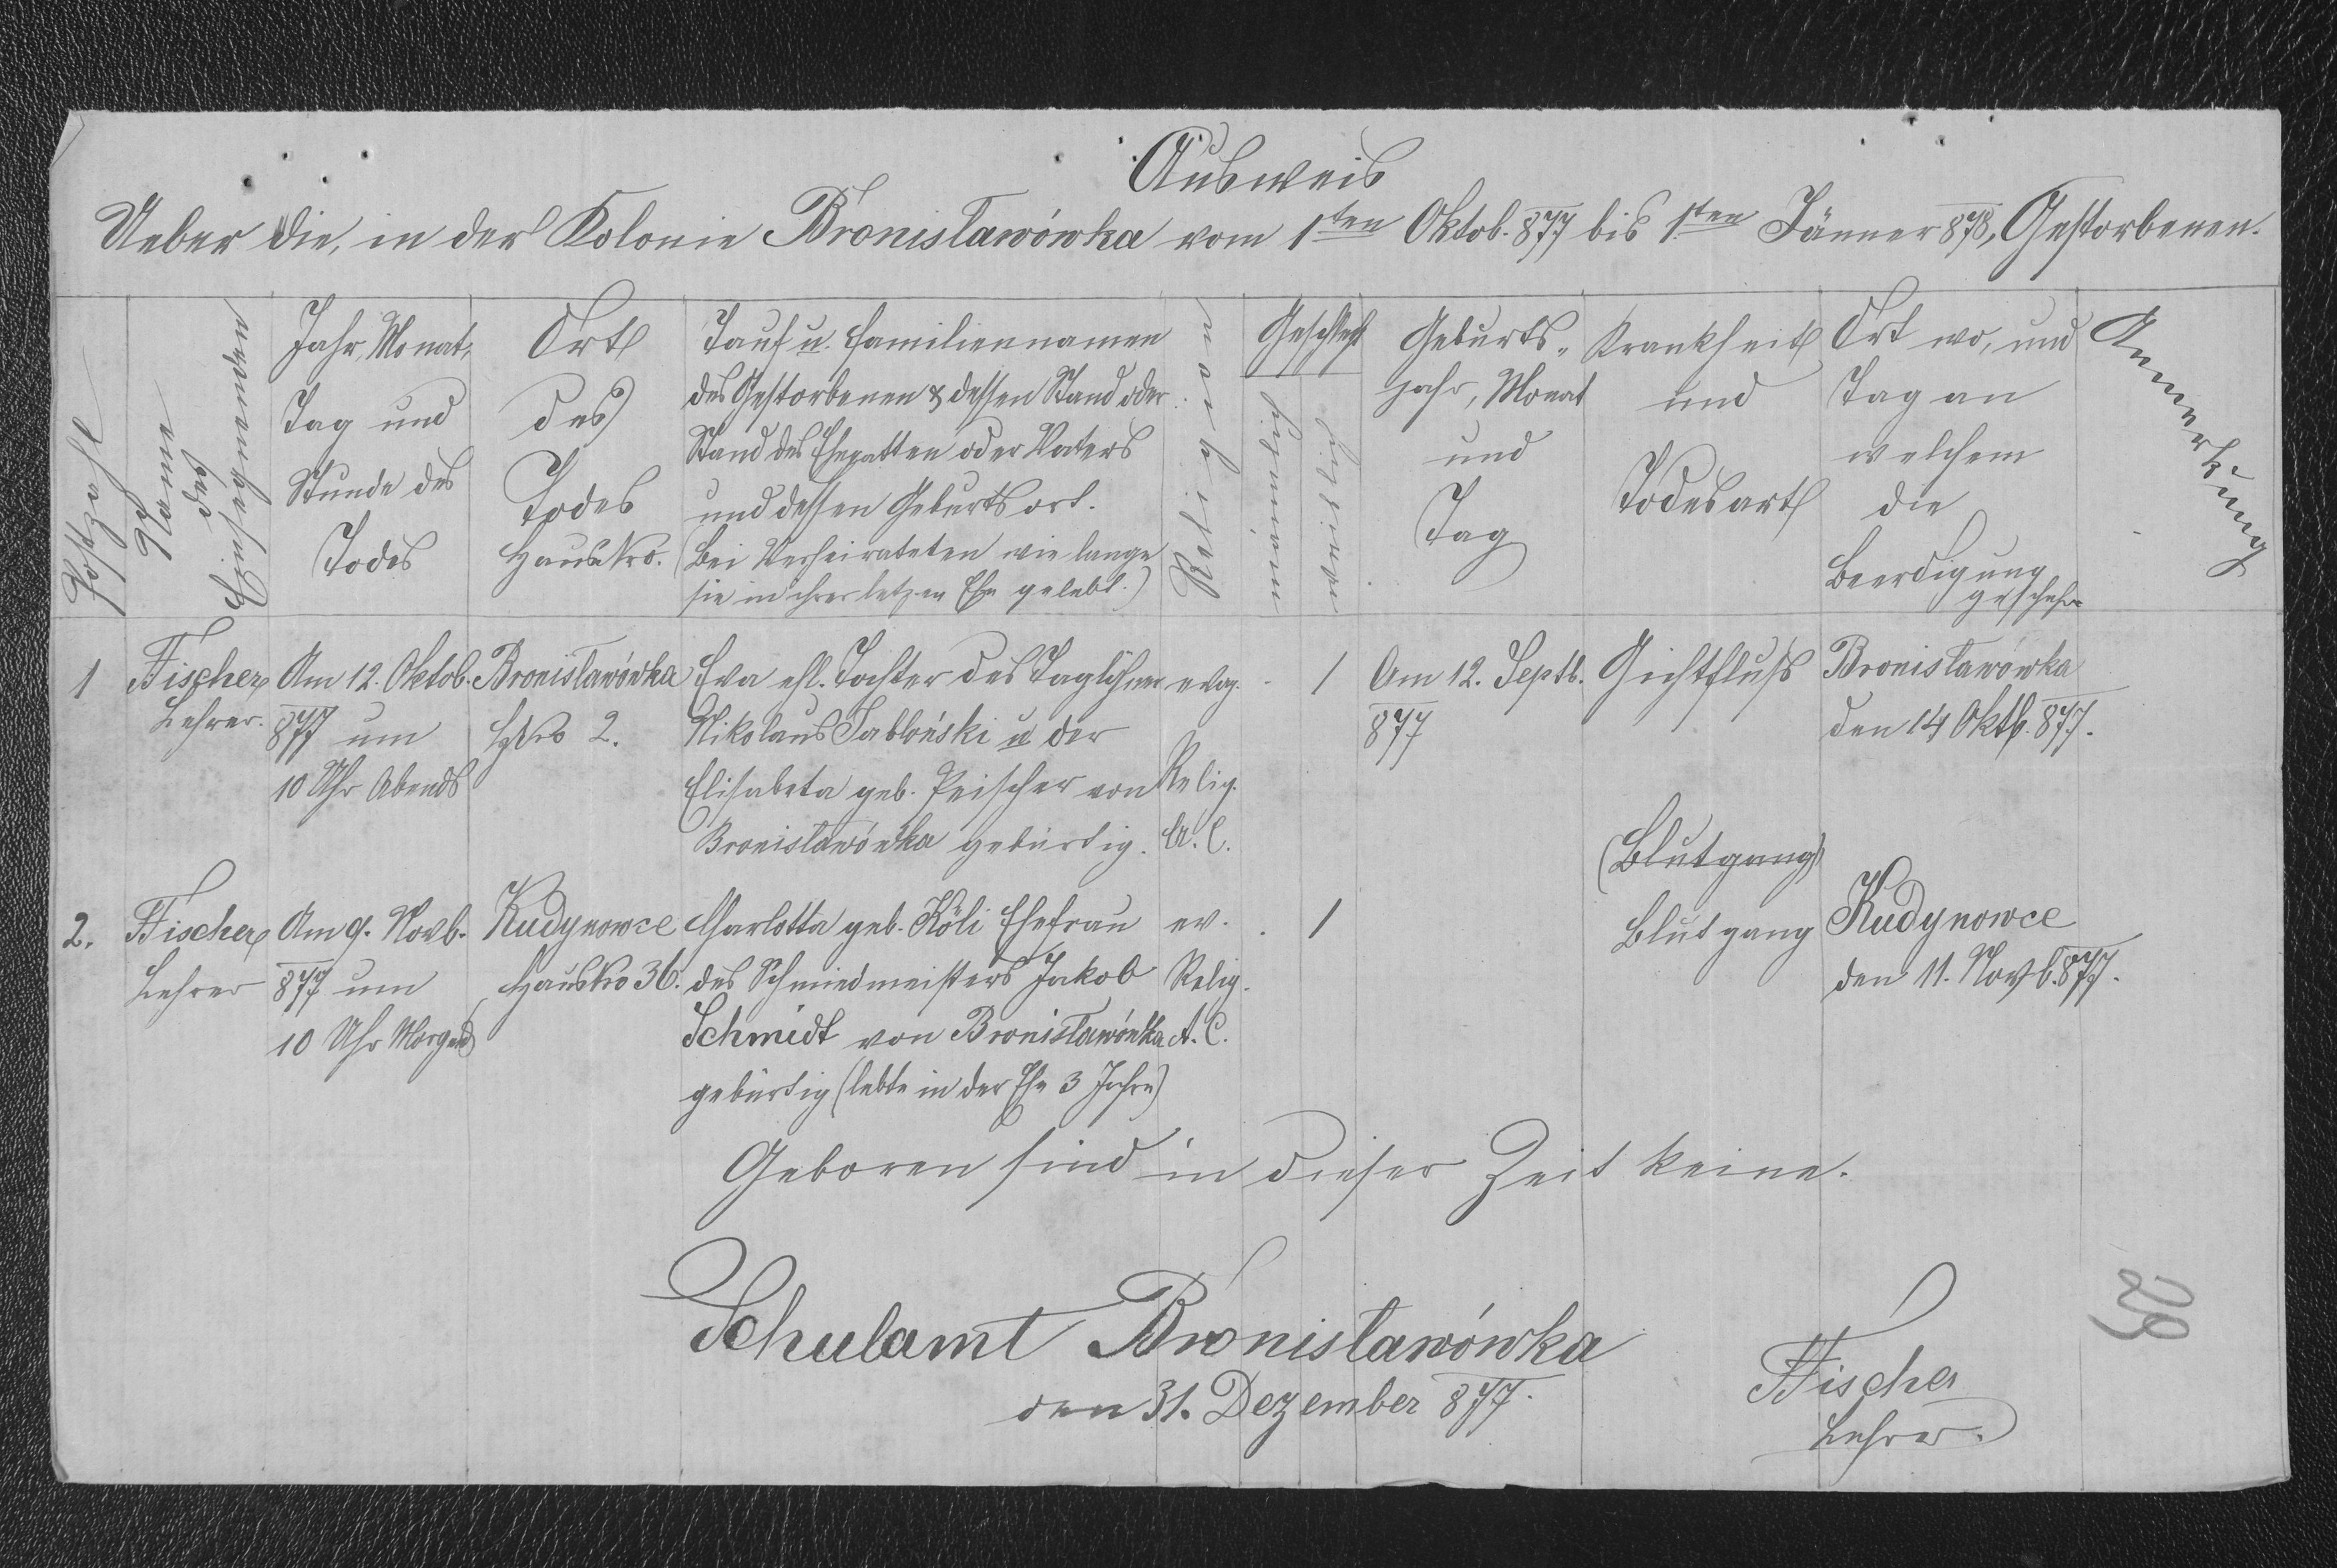 Ausweis
Ueber die, in der Kolonie Bronisławówka vom 1ten Oktob. 877 bis 1ten Jänner 878, Gestorbenen.
Postzahl
Name
des
Einsegnenden
Jahr, Monat,
Tag und
Stunde des
Todes
Ort
des
Todes
Haus Nro.
Tauf u. Familiennamen
des Gestorbenen & dessen Stand oder
Stand des Ehegatten oder Vaters
und dessen Geburtsort.
(Bei Verheirateten wie lange
sie in ihrer letzen Ehe gelebt.)
Religion
Geschlecht
männlich
weiblich
Geburts-
jahr, Monat
und
Tag
Krankheit
und
Todesart
Ort wo, und
Tag an
welchem
die
Beerdigung
geschehen
Anmerkung
1 Fischer Am 12. Oktob. Bronisławówka Eva ehl. Tochter des Taglöhner evag. - 1 Am 12. Septb. Gichtfluß Bronisławówka
Lehrer. 877 um HsNro 2. Nikolaus Jabłoński u der 877 den 14 Oktb. 877.
10 Uhr Abends Elisabeta geb. Peischer von Relig.
Bronisławówka gebürtig. A. C.
(Blutgang)
2. Fischer Am 9. Novb. Kudynowce Charlotta geb. Köli Ehefrau ev. . 1 Blutgang Kudynowce
Lehrer 877 um Haus Nro 36. des Schmiedmeisters Jakob Relig. den 11. Novb. 877.
10 Uhr Morgends Schmidt von Bronisławówka A. C.
gebürtig (lebte in der Ehe 3 Jahre)
Geboren sind in dieser Zeit keine.
Schulamt Bronisławówka
den 31. Dezember 877.
Fischer
Lehrer.
29